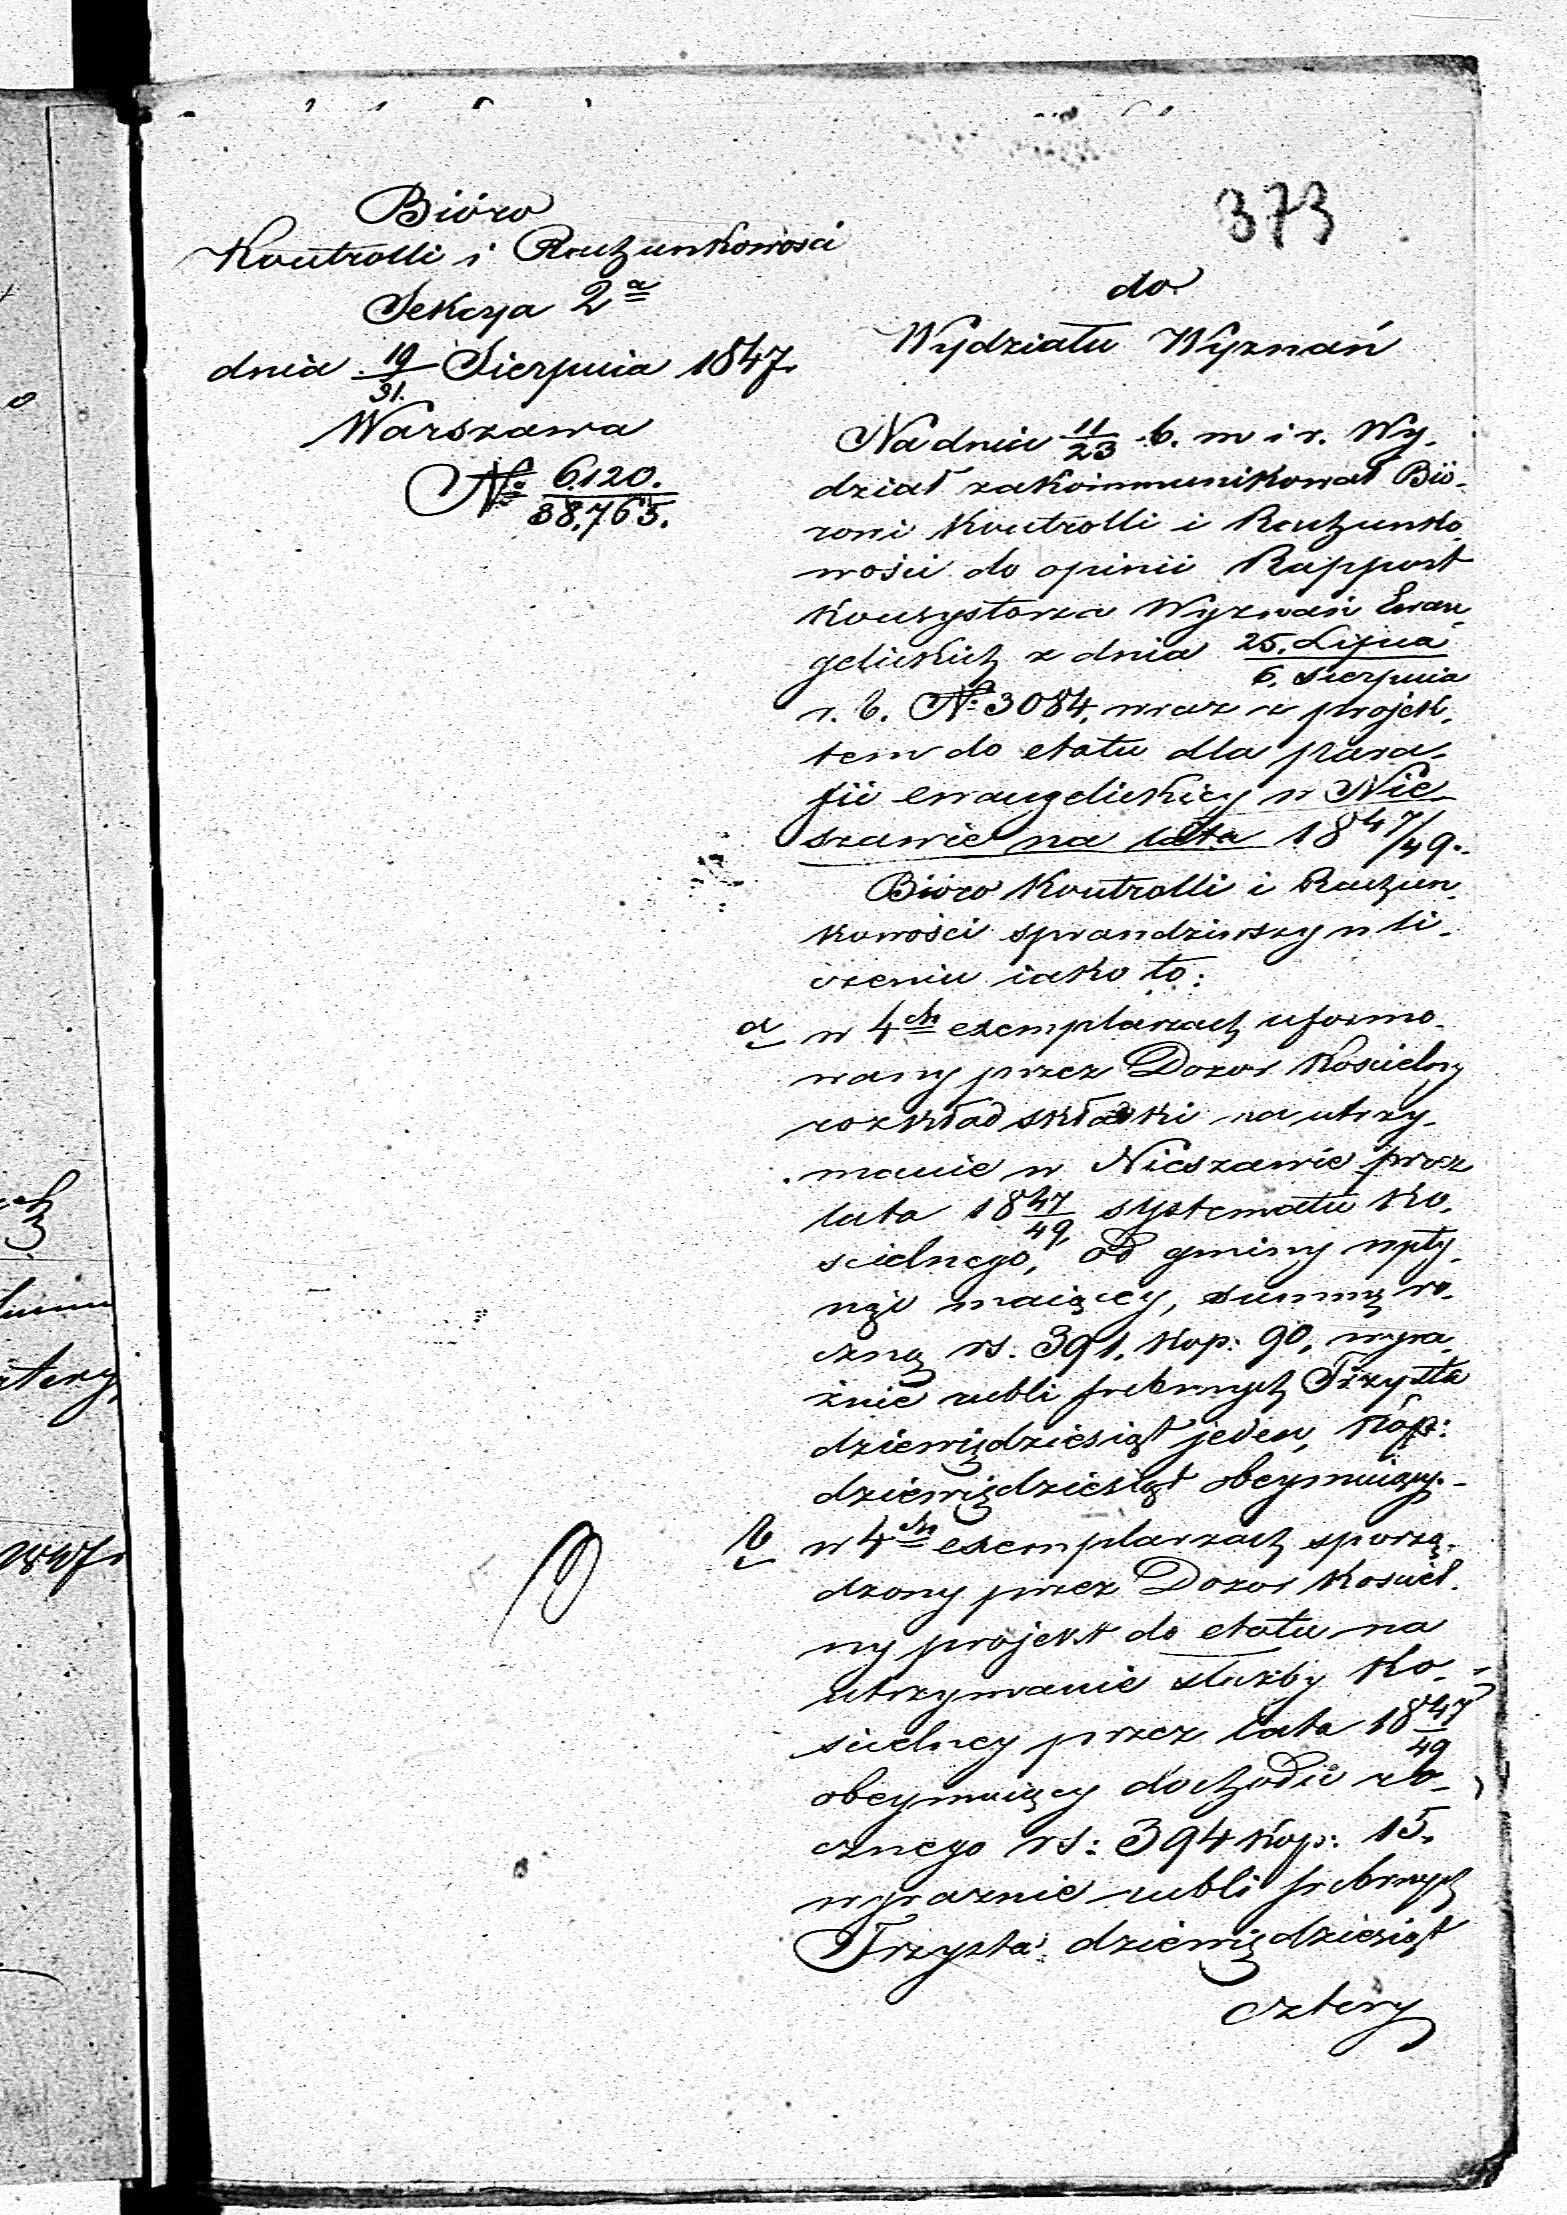 373
Bióro
Kontrolli i Rachunkowości
Sekcya 2<sup>a</sup>
dnia 19/31. Sierpnia 1847.
Warszawa
№ 6,120./38,763.
do
Wydziału Wyznań
Na dniu 11/23 b. m i r. Wy-
dział zakommunikował Bió-
rowi Kontrolli i Rachunko-
wości do opinii Rapport
Konsystorza Wyznań Ewan-
gelickich z dnia 25. Lipca/6. Sierpnia
r. b. № 3084, wraz z projek-
tem do etatu dla para-
fii ewangelickiey w Nie-
szawie na lata 1847/49.
Bióro Kontrolli i Rachun-
kowości sprawdziwszy w li-
czeniu iako to:
a w 4ch exemplarzach uformo-
wany przez Dozor Kościelny
rozkład składki na utrzy-
manie w Nieszawie przez
lata 1847/49, systematu Ko-
scielnego, od gminy wpły-
nąć maiący, summę ro-
czną rs. 391, Kop: 90, wyra-
źnie rubli srebrnych Trzysta
dziewiędziesiąt jeden, Kop:
dziewiędziesiąt obeymuiący.-
b w 4ch exemplarzach sporzą-
dzony przez Dozor Kościel-
ny projekt do etatu na
utrzymanie służby Ko-
scielney przez lata 1847/49
obeymuiący dochodu ro-
cznego rs: 394 Kop: 15.
wyraznie rubli srebrnych
Trzysta dziewiędziesiąt
cztery